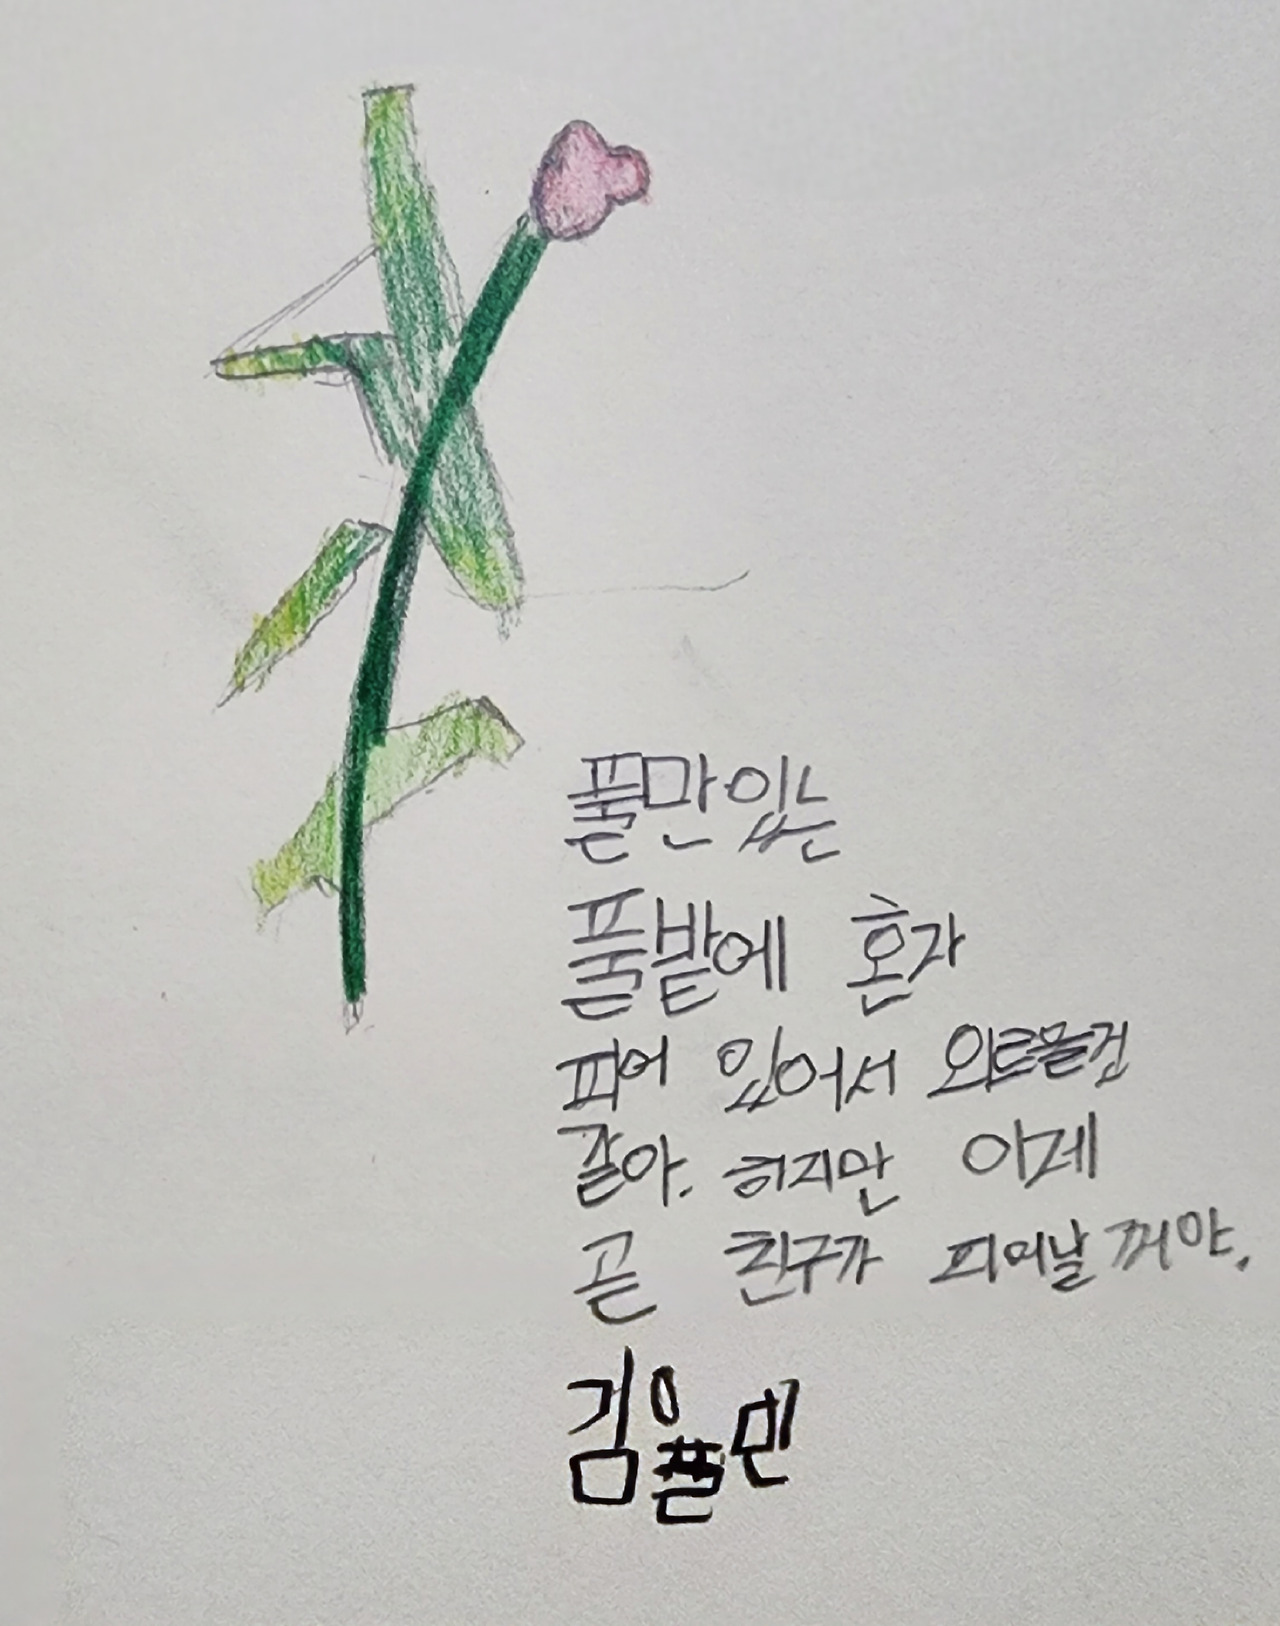 풀만있는
풀밭에 혼자
피어 있어서 외로울건
같아. 하지만 이제
곧 친구가 피어날 꺼야.
김율민